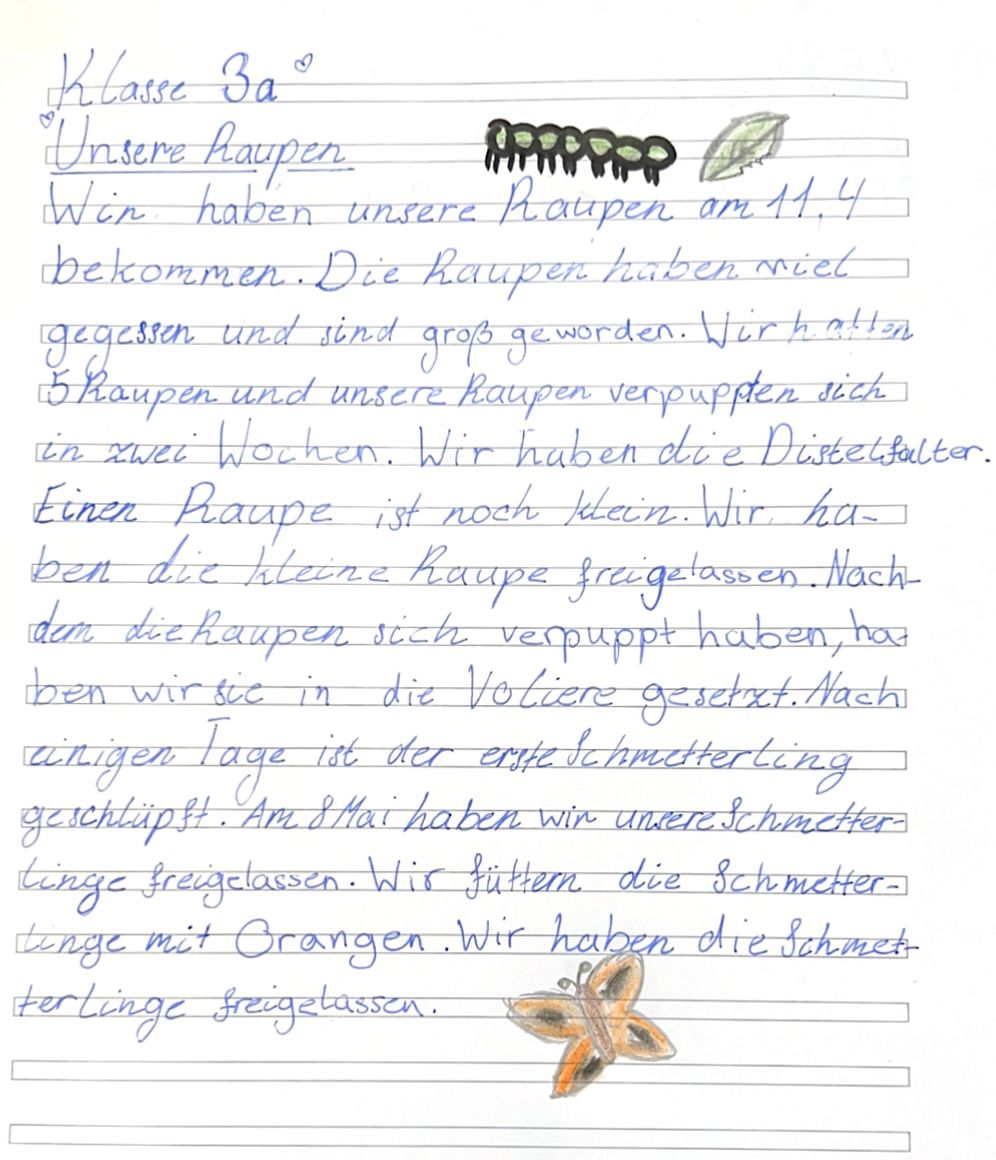 Klasse 3a
Unsere Raupen
Wir haben unsere Raupen am 11.4
bekommen. Die Raupen haben viel
gegessen und sind groß geworden. Wir hatten
5 Raupen und unsere Raupen verpuppten sich
in zwei Wochen. Wir haben die Distelfalter.
Einen Raupe ist noch klein. Wir ha-
ben die kleine Raupe freigelassen. Nach-
dem die Raupen sich verpuppt haben, ha-
ben wir sie in die Voliere gesetzt. Nach
einigen Tage ist der erste Schmetterling
geschlüpft. Am 8 Mai haben wir unsere Schmetter-
linge freigelassen. Wir füttern die Schmetter-
linge mit Orangen. Wir haben die Schmet-
terlinge freigelassen.